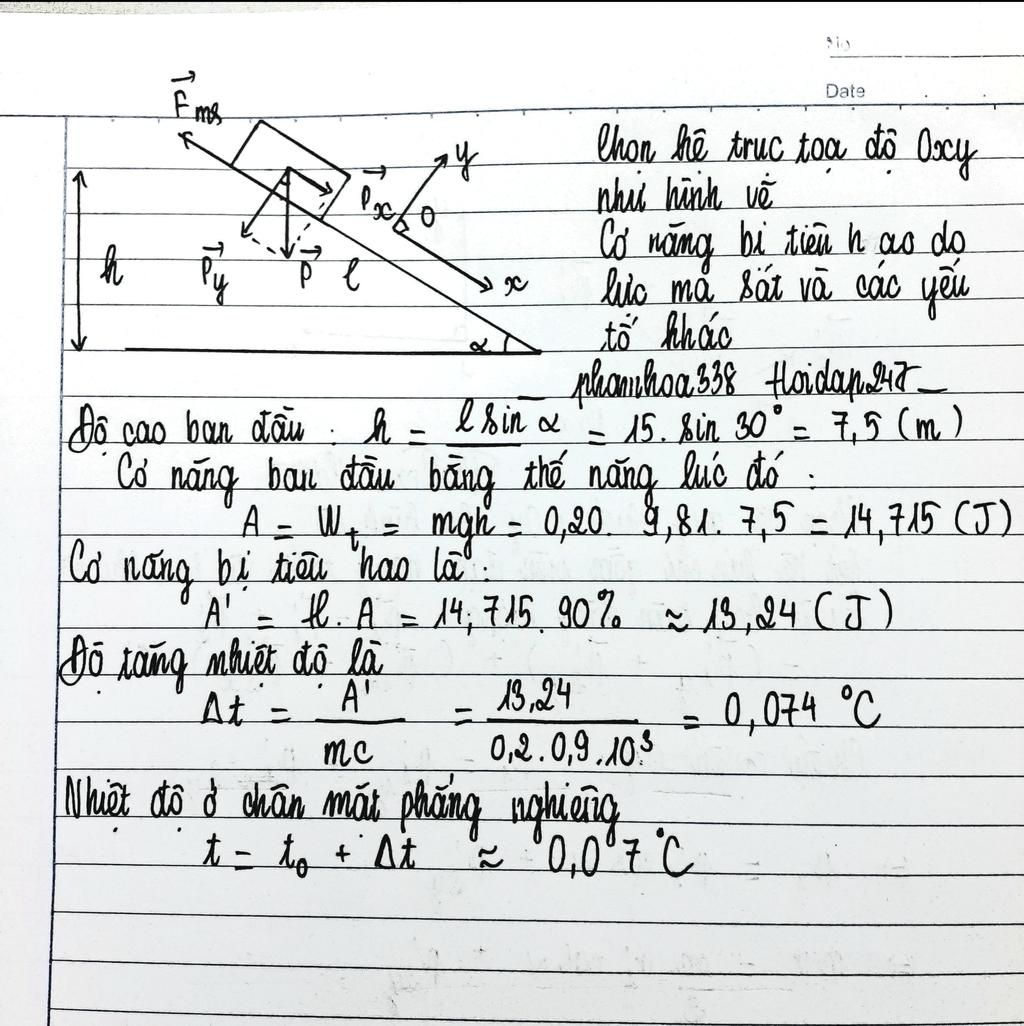 No
Date
F ms
Px
Py
P
l
h
α
y
O
x
Chọn hệ trục tọa độ Oxy
như hình vẽ
Cơ năng bị tiêu hao do
lực ma sát và các yếu
tố khác
phamhoa338 Hoidap247
Độ cao ban đầu : h = l sin α = 15. sin 30° = 7,5 (m)
Cơ năng ban đầu bằng thế năng lúc đó :
A = Wt = mgh = 0,20. 9,81. 7,5 = 14,715 (J)
Cơ năng bị tiêu hao là:
A' = H. A = 14,715. 90% ≈ 13,24 (J)
Độ tăng nhiệt độ là
Δt = A' / mc = 13,24 / 0,2.0,9.10³ = 0,074 °C
Nhiệt độ ở chân mặt phẳng nghiêng
t = t₀ + Δt ≈ 0,07 °C